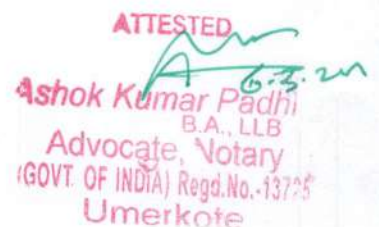 ATTESTED
Ashok Kumar Padhi
B.A., LLB
Advocate, Notary
(GOVT. OF INDIA) Regd.No.-13725
Umerkote